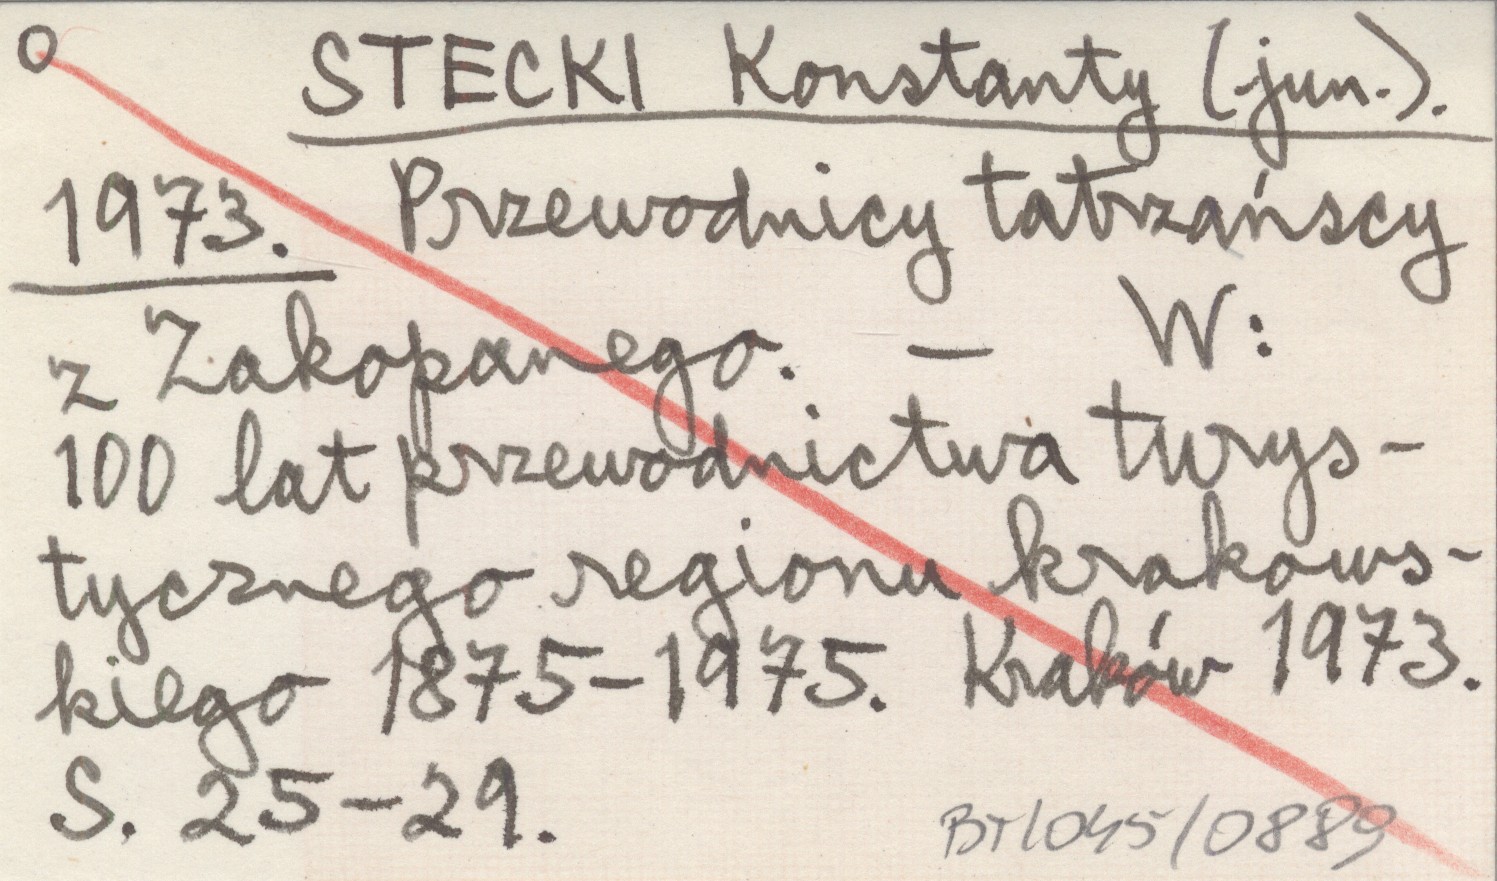 O STECKI Konstanty (jun.).
1973. Przewodnicy tatrzańscy
z Zakopanego. — W:
100 lat przewodnictwa turys-
tycznego regionu krakows-
kiego 1875-1975. Kraków 1973.
S. 25-29.
BT/045/0889